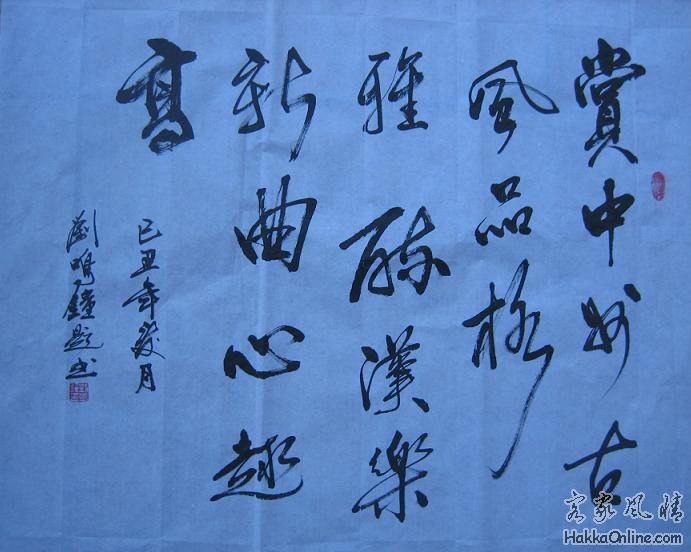 賞中州古
風品格
雅 酥漢樂
新曲心趣
高
己丑年葭月
劉鳴鐘題书
客家風情
HakkaOnline.com